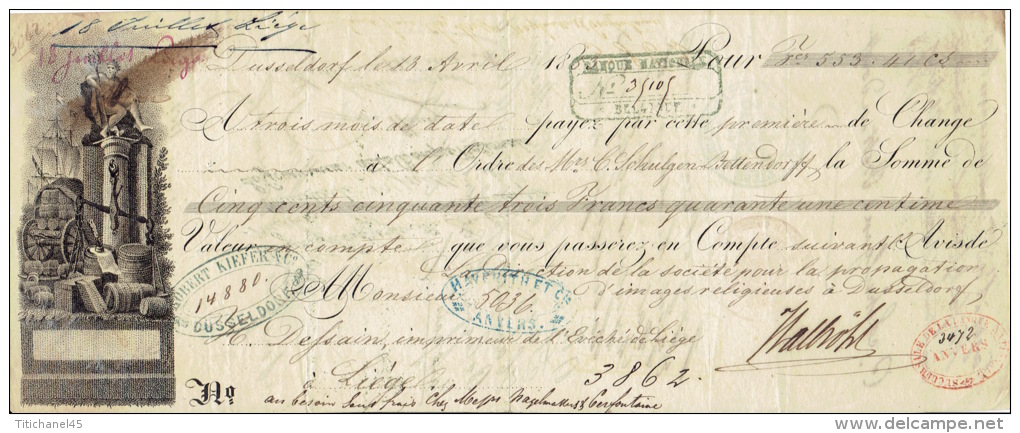 18 Juillet Liége
18 Juillet Liége
Dusseldorf le 18 Avril 18 Pour Frs 553.41 Cs
BANQUE NATIONALE
No 35105
BELGIQUE
A trois mois de date payez par cette première de Change
à l'Ordre des Mrs C. Schulgen-Bettendorff la Somme de
Cinq cents cinquante trois Francs quarante une centime
Valeur en compte que vous passerez en Compte suivant l'Avis de
ROBERT KIEFER & Co
14880
DUSSELDORF
Direction de la société pour la propagation
A Monsieur d'images religieuses à Dusseldorf
ET Cie
ANVERS.
C. Dessain, imprimeur de l'Evêché de Liége
à Liége
3862.
3472
ANVERS
No
au besoin sans frais chez Messrs Nagelmackers & Cerfontaine
Titichanel45
©delcampe.net